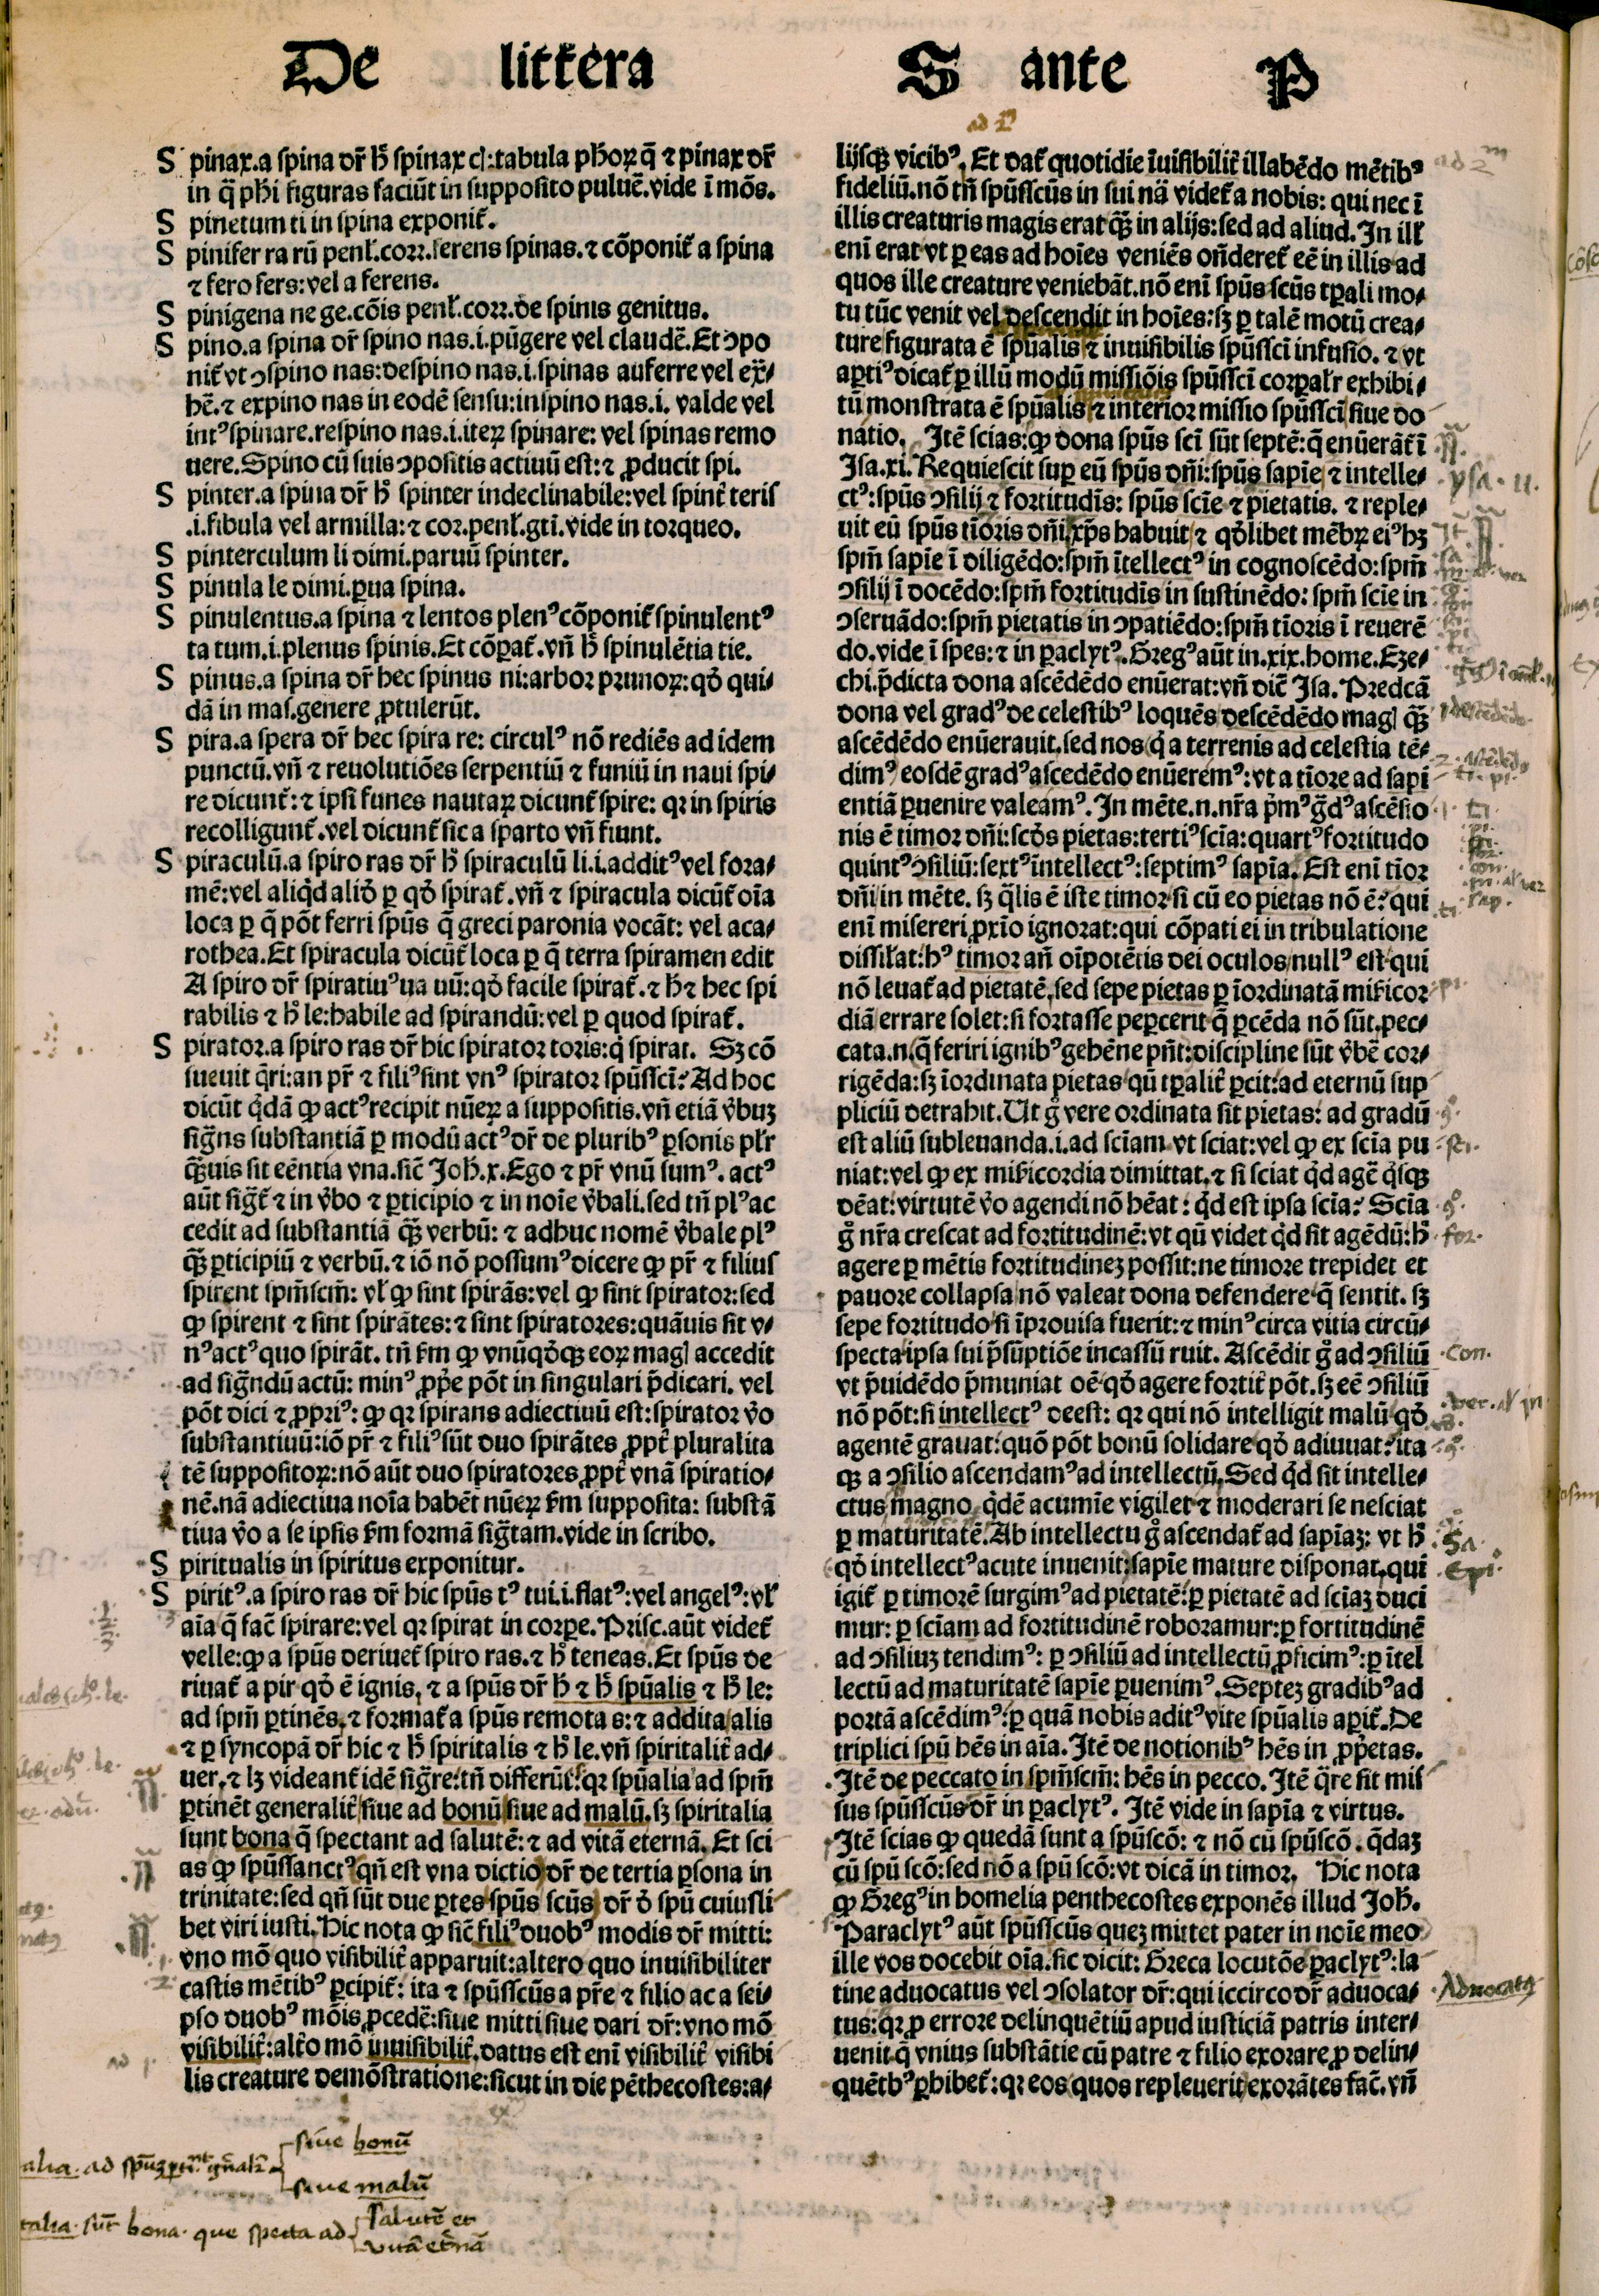 De littera S ante P
S pinax.a spina dr̄ h̄ spinax cl:tabula ph̄oꝝ q̄ ⁊ pinax dr̄
in q̄ ph̄i figuras faciūt in supposito puluē.vide ī mōs.
S pinetum ti in spina exponit̄.
S pinifer ra rū penl̄.corr.ferens spinas.⁊ cōponit̄ a spina
⁊ fero fers:vel a ferens.
S pinigena ne ge.cōis penl̄.corr.de spinis genitus.
S pino.a spina dr̄ spino nas.i.pūgere vel claudē.Et ↄpo
nit̄ vt ↄspino nas:despino nas.i.spinas auferre vel ex̄-
hē.⁊ expino nas in eodē sensu:inspino nas.i. valde vel
intꝰ spinare.respino nas.i.iteꝝ spinare: vel spinas remo
uere.Spino cū suis ↄpositis actiuū est:⁊ ꝓducit spi.
S pinter.a spina dr̄ h̄ spinter indeclinabile:vel spint̄ teris
.i.fibula vel armilla:⁊ cor.penl̄.gti̅.vide in torqueo.
S pinterculum li dimi.paruū spinter.
S pinula le dimi.ꝑua spina.
S pinulentus.a spina ⁊ lentos plenꝰ cōponit̄ spinulentꝰ
ta tum.i.plenus spinis.Et cōꝑat̄.vn̄ h̄ spinulētia tie.
S pinus.a spina dr̄ hec spinus ni:arbor prunoꝝ:qd̄ qui-
dā in mas.genere ꝓtulerūt.
S pira.a spera dr̄ hec spira re: circulꝰ nō rediēs ad idem
punctū.vn̄ ⁊ reuolutiōes serpentiū ⁊ funiū in naui spi-
re dicunt̄:⁊ ipsi funes nautaꝝ dicunt̄ spire: qꝛ in spiris
recolligunt̄.vel dicunt̄ sic a sparto vn̄ fiunt.
S piraculū.a spiro ras dr̄ h̄ spiraculū li.i.additꝰ vel fora-
mē:vel aliqd̄ aliō ꝑ qd̄ spirat̄.vn̄ ⁊ spiracula dicūt̄ oīa
loca ꝑ q̄ pōt ferri spūs q̄ greci paronia vocāt: vel aca-
rothea.Et spiracula dicūt̄ loca ꝑ q̄ terra spiramen edit
A spiro dr̄ spiratiuꝰ ua uū:qd̄ facile spirat̄.⁊ h̄ ⁊ hec spi
rabilis ⁊ h̄ le:habile ad spirandū:vel ꝑ quod spirat̄.
S pirator.a spiro ras dr̄ hic spirator toris:q̇ spirat. Sꝫ cō
sueuit q̄ri:an pr̄ ⁊ filiꝰ sint vnꝰ spirator spūssci̅? Ad hoc
dicūt q̇dā ꝙ actꝰ recipit nūeꝝ a suppositis.vn̄ etiā v̄buꝫ
sig̅ns substantiā ꝑ modū actꝰ dr̄ de pluribꝰ ꝑsonis pl̄r
q̄ꝫuis sit eēntia vna.sic̄ Joh̄.x.Ego ⁊ pr̄ vnū sumꝰ. actꝰ
aūt sig̅t̄ ⁊ in v̄bo ⁊ ꝑticipio ⁊ in noīe v̄bali.sed tn̄ plꝰ ac
cedit ad substantiā q̄ꝫ verbū: ⁊ adhuc nomē v̄bale plꝰ
q̄ꝫ ꝑticipiū ⁊ verbū.⁊ iō nō possumꝰ dicere ꝙ pr̄ ⁊ filius
spirent spm̄scm̄: vl̄ ꝙ sint spirās:vel ꝙ sint spirator:sed
ꝙ spirent ⁊ sint spirātes:⁊ sint spiratores:quāuis sit v-
nꝰ actꝰ quo spirāt. tn̄ fm̄ ꝙ vnūqd̄ꝙ eoꝝ magꝭ accedit
ad sig̅ndū actū: minꝰ ꝓp̄e pōt in singulari p̄dicari. vel
pōt dici ⁊ ꝓpriꝰ: ꝙ qꝛ spirans adiectiuū est:spirator v̄o
substantiuū:iō pr̄ ⁊ filiꝰ sūt duo spirātes ꝓpt̄ pluralita
tē suppositoꝝ:nō aūt duo spiratores ꝓpt̄ vnā spiratio-
nē.nā adiectiua noīa habēt nūeꝝ fm̄ supposita: substā
tiua v̄o a se ipsis fm̄ formā sig̅tam.vide in scribo.
S piritualis in spiritus exponitur.
S piritꝰ.a spiro ras dr̄ hic spūs tꝰ tui.i.flatꝰ:vel angelꝰ:vl̄
aīa q̄ fac̄ spirare:vel qꝛ spirat in corꝑe.Prisc.aūt videt̄
velle:ꝙ a spūs deriuet̄ spiro ras.⁊ h̄ teneas.Et spūs de
riuat̄ a pir qd̄ ē ignis, ⁊ a spūs dr̄ h̄ ⁊ h̄ spūalis ⁊ h̄ le:
ad spm̄ ꝑtinēs.⁊ format̄ a spūs remota s:⁊ addita alis
⁊ ꝑ syncopā dr̄ hic ⁊ h̄ spiritalis ⁊ h̄ le.vn̄ spiritalit̄ ad-
uer.⁊ lꝫ videant̄ idē sig̅re:tn̄ differūt:qꝛ spūalia ad spm̄
ꝑtinēt generalit̄ siue ad bonū siue ad malū.sꝫ spiritalia
sunt bona q̄ spectant ad salutē:⁊ ad vitā eternā. Et sci
as ꝙ spūssanctꝰ qn̄ est vna dictio dr̄ de tertia ꝑsona in
trinitate:sed qn̄ sūt due ꝑtes spūs scūs dr̄ d̄ spū cuiusli
bet viri iusti.Hic nota ꝙ sic̄ filiꝰ duobꝰ modis dr̄ mitti:
vno mō quo visibilit̄ apparuit:altero quo inuisibiliter
castis mētibꝰ ꝑcipit̄: ita ⁊ spūsscūs a pr̄e ⁊ filio ac a sei-
pso duobꝰ mōis ꝓcedē:siue mitti siue dari dr̄:vno mō
visibilit̄:alt̄o mō inuisibilit̄.datus est eni̅ visibilit̄ visibi
lis creature demōstratione:sicut in die pēthecostes:a-
siue bonū
alia. ad
siue malū
talia. sūt bona. que specta ad
Salutē et
vitā et̄nā
ad 2m
lijsqꝫ vicibꝰ. Et dat̄ quotidie īuisibilit̄ illabēdo mētibꝰ
fideliū.nō tn̄ spūsscūs in sui nā videt̄ a nobis: qui nec ī
illis creaturis magis erat q̄ꝫ in alijs:sed ad aliud.In ill̄
eni̅ erat vt ꝑ eas ad hoīes veniēs on̄deret̄ eē in illis ad
quos ille creature veniebāt.nō eni̅ spūs scūs tꝑali mo-
tu tūc venit vel descendit in hoīes:sꝫ ꝑ talē motū crea-
ture figurata ē spūalis ⁊ inuisibilis spūssci̅ infusio. ⁊ vt
aꝑtiꝰ dicat̄ ꝑ illū modū missiōis spūssci̅ corꝑal̄r exhibi-
tū monstrata ē spūalis ⁊ interior missio spūssci̅ siue do
natio. Itē scias:ꝙ dona spūs sci̅ sūt septē:q̄ enūerāt̄ ī
Isa.xi.Requiescit suꝑ eū spūs dn̄i:spūs sapīe ⁊ intelle-
ctꝰ:spūs ↄsilij ⁊ fortitudi̅s: spūs sci̅e ⁊ pietatis. ⁊ reple-
uit eū spūs ti̅oris dn̄i.xp̄s habuit ⁊ qd̄libet mēbꝝ eiꝰ hꝫ
spm̄ sapīe ī diligēdo:spm̄ ītellectꝰ in cognoscēdo:spm̄
ↄsilij ī docēdo:spm̄ fortitudi̅s in sustinēdo: spm̄ scie in
ↄseruādo:spm̄ pietatis in ↄpatiēdo:spm̄ ti̅oris ī reuerē
do.vide ī spes:⁊ in ꝑaclytꝰ.Gregꝰ aūt in.xix.home.Eze-
chi.p̄dicta dona ascēdēdo enūerat:vn̄ dic̄ Isa. Predcā
dona vel gradꝰ de celestibꝰ loquēs descēdēdo magꝭ q̄ꝫ
ascēdēdo enūerauit.sed nos q̇ a terrenis ad celestia tē-
dimꝰ eosdē gradꝰ ascedēdo enūeremꝰ:vt a ti̅ore ad sapi̅
entiā ꝑuenire valeamꝰ. In mēte.n.nr̄a p̄mꝰ g̅dꝰ ascēsio
nis ē timor dn̄i:scd̄s pietas:tertiꝰ sci̅a:quartꝰ fortitudo
quintꝰ ↄsiliū:sextꝰ ītellectꝰ:septimꝰ sapīa. Est eni̅ ti̅or
dn̄i in mēte. sꝫ q̄lis ē iste timor si cū eo pietas nō ē? qui
eni̅ misereri ꝓxi̅o ignorat:qui cōpati ei in tribulatione
dissil̄at:hꝰ timor an̄ oi̅potētis dei oculos nullꝰ est qui
nō leuat̄ ad pietatē.sed sepe pietas ꝑ īordinatā mi̅icor
diā errare solet:si fortasse pepercerit q̄ ꝑcēda nō sūt.pec-
cata.n.q̄ feriri ignibꝰ gehēne pn̄t:discipline sūt v̄bē cor-
rigēda:sꝫ īordinata pietas qū tꝑalit̄ ꝑcit:ad eternū sup
pliciū detrahit. Ut g̊ vere ordinata sit pietas: ad gradū
est aliū subleuanda.i.ad sci̅am vt sciat:vel ꝙ ex sci̅a pu
niat:vel ꝙ ex mi̅icordia dimittat.⁊ si sciat qd̄ agē q̇sqꝫ
dēat:virtutē v̄o agendi nō hēat: qd̄ est ipsa sci̅a? Sci̅a
g̊ nr̄a crescat ad fortitudinē:vt qū videt qd̄ sit agēdū:h̄
agere ꝑ mētis fortitudineꝫ possit:ne timore trepidet et
pauore collapsa nō valeat dona defendere q̄ sentit. sꝫ
sepe fortitudo si īprouisa fuerit:⁊ minꝰ circa vitia circū-
specta ipsa sui p̄sūptiōe incassū ruit. Ascēdit g̊ ad ↄsiliū
vt p̄uidēdo p̄muniat oē qd̄ agere fortit̄ pōt.sꝫ eē ↄsiliū
nō pōt:si intellectꝰ deest: qꝛ qui nō intelligit malū qd̄
agentē grauat:quō pōt bonū solidare qd̄ adiuuat? ita
qꝫ a ↄsilio ascendamꝰ ad intellectū.Sed qd̄ sit intelle-
ctus magno q̇dē acumīe vigilet ⁊ moderari se nesciat
ꝑ maturitatē.Ab intellectu g̊ ascendat̄ ad sapīaꝫ: vt h̄
qd̄ intellectꝰ acute inuenit:sapīe mature disponat.qui
igit̄ ꝑ timorē surgimꝰ ad pietatē:ꝑ pietatē ad sci̅aꝫ duci
mur: ꝑ sci̅am ad fortitudinē roboramur:ꝑ fortitudinē
ad ↄsiliuꝫ tendimꝰ: ꝑ ↄsiliū ad intellectū ꝓficimꝰ:ꝑ ītel
lectū ad maturitatē sapīe ꝑuenimꝰ.Septeꝫ gradibꝰ ad
portā ascēdimꝰ:ꝑ quā nobis aditꝰ vite spūalis aꝑit̄.De
triplici spū hēs in aīa. Itē de notionibꝰ hēs in ꝓp̄etas.
Itē de peccato in spm̄scm̄: hēs in pecco. Itē q̄re sit mis
sus spūsscūs dr̄ in ꝑaclytꝰ. Itē vide in sapīa ⁊ virtus.
Itē scias ꝙ quedā sunt a spūscō: ⁊ nō cū spūscō. q̄daꝫ
cū spū scō:sed nō a spū scō:vt dicā in timor. Hic nota
ꝙ Gregꝰ in homelia penthecostes exponēs illud Joh̄.
Paraclytꝰ aūt spūsscūs queꝫ mittet pater in noīe meo
ille vos docebit oīa.sic dicit: Greca locutōe ꝑaclytꝰ:la
tine aduocatus vel ↄsolator dr̄:qui iccirco dr̄ aduoca-
tus:qꝛ ꝓ errore delinquētiū apud iusticiā patris inter-
uenit.q̄ vnius substātie cū patre ⁊ filio exorare ꝓ delin-
quētbꝰ ꝑhibet̄: qꝛ eos quos repleuerit exorātes fac̄.vn̄
ysa. 11.
for.
con.
Sa.
Aduocatꝰ